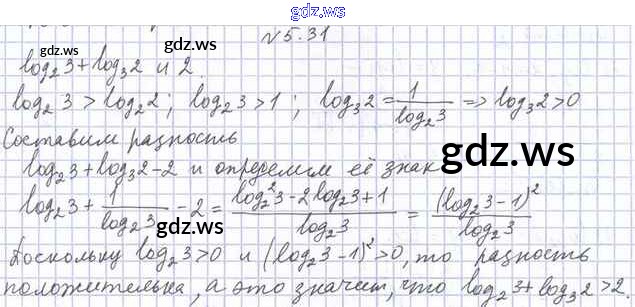 gdz.ws
gdz.ws
N5.31
log₂3 + log₃2 и 2.
log₂3 > log₂2; log₂3 > 1; log₃2 = 1/log₂3 => log₃2 > 0
Составим разность
gdz.ws
log₂3 + log₃2 - 2 и определим её знак
log₂3 + 1/log₂3 - 2 = (log₂²3 - 2log₂3 + 1)/log₂3 = (log₂3 - 1)²/log₂3
gdz.ws
Поскольку log₂3 > 0 и (log₂3 - 1)² > 0, то разность
положительна, а это значит, что log₂3 + log₃2 > 2.